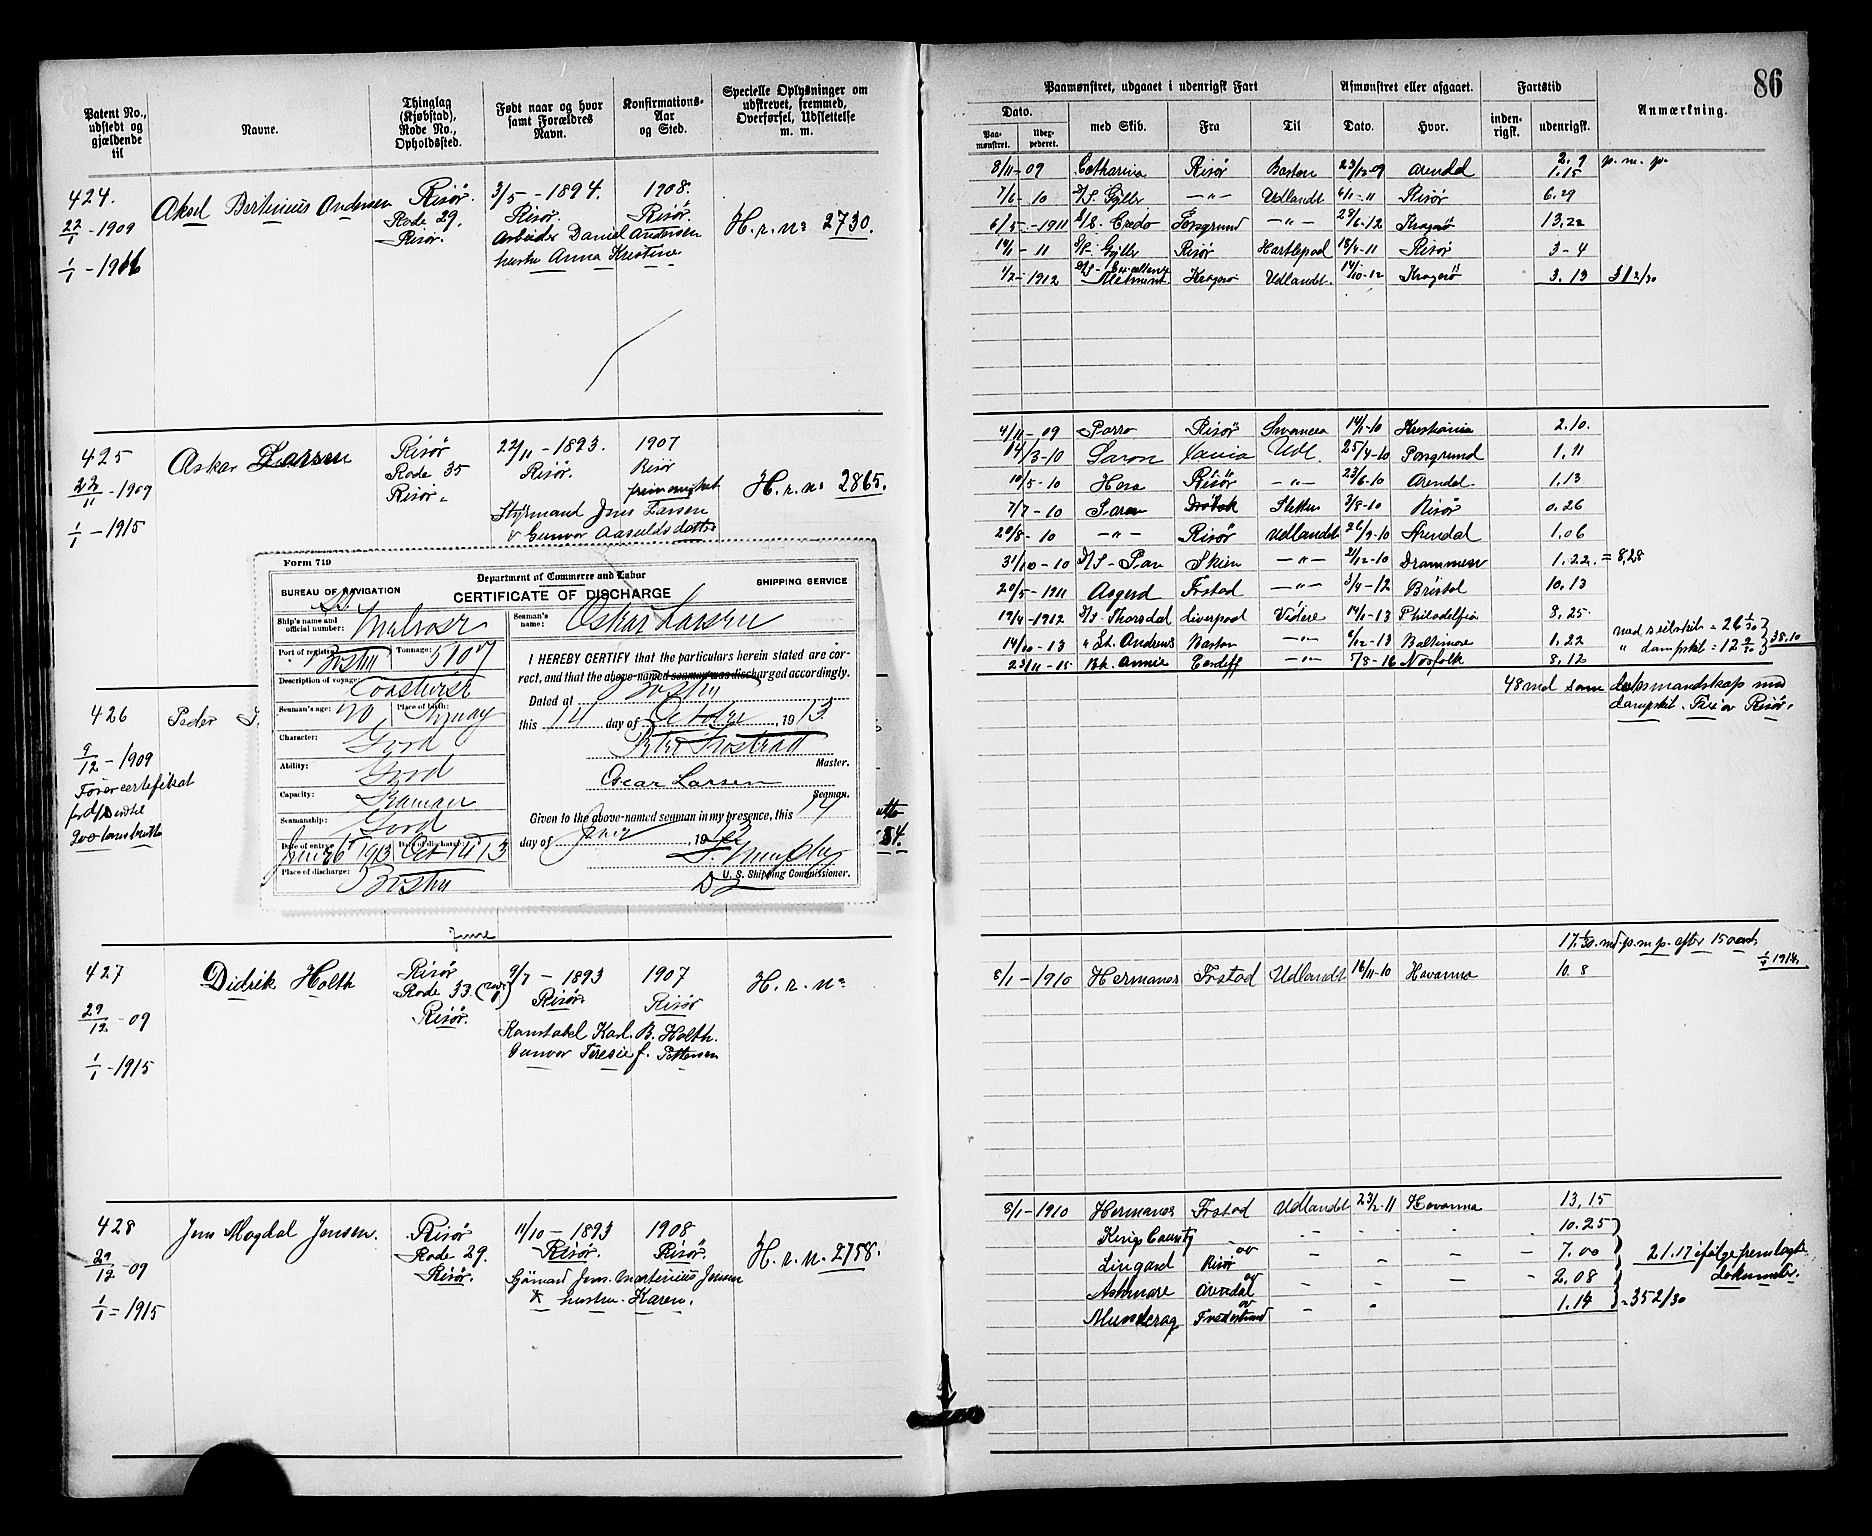 86
Patent No., udstedt og gjældende til
Navne.
Thinglag (Kjøbstad), Rode No., Opholdssted.
Født naar og hvor samt Forældres Navn.
Konfirmations-Aar og Sted.
Specielle Oplysninger om udskrevet, fremmed, Overførsel, Udslettelse m. m.
Paamønstret, udgaaet i udenrigsk Fart
Afmønstret eller afgaaet.
Fartstid
Anmærkning.
Dato.
Paa-mønstret.
med Skib.
Fra
Til
Dato.
Hvor.
inden-rigsk.
udenrigsk.
424.
22/1 - 1909
1/1 - 1916
Aksel Bertinius Andersen
Risør.
Rode 29.
Risør.
3/5 - 1894.
Risør.
Arbeider Daniel Andersen
hustru Anna Kristine
1908.
Risør.
H. r. No 2730.
8/11-09 Catharina Risør Boston 23/12-09 Arendal 2.9 p. m. p.
1.15
7/6-10 D/S. Gyller -"- Udlandt 6/1-11 Risør 6.29
6/5-1911 S/S. Credo Porsgrund -"- 29/6-12 Kragerø 13.22
19/1-11 S/S- Gyller Risør Hartlepool 18/4-11 Risør 3-4
1/7-1912 Kragerø Udlandt. 14/10-12 Kragerø 3.13
425
22/11 - 1909
1/1 - 1915
Askar Larsen
Risør
Rode 35
Risør.
22/11 - 1893.
Risør.
Styrmand Jens Larsen
& Gunvor Aasuldsdatter
1907
Risør
frimenighet
H. r. No 2865.
4/11-09 Parro Risør Swansea 14/1-10 Kristiania 2.10.
14/3-10 Saron Xania Udl. 25/4-10 Porsgrund 1.11
10/5-10 Risør -"- 23/6-10 Arendal. 1.13
7/7-10 Saron Drøbak Stettin 3/8-10 Risør 0.26
20/8-10 -"- Risør Udlandet 26/9-10 Arendal 1.06
31/10-10 D/S- Pan Skien -"- 21/12-10 Drammen 1.22. = 8,28
20/5-1911 Asgerd Frstad -"- 3/4-12 Bristol 10.13
19/4-1912 D/S Thorsdal Liverpool Videre 14/1-13 Philadelfia 8.25.
14/10-13 " St. Andrews Boston 6/12-13 Baltimore 1.22
23/11-15 Bk. Annie Cardiff -"- 7/8-16 Norfolk 8.12
med seilskib = 26
" dampskib = 12
38.10
48 md som dæksmandskap med
dampskib.
Form 719
Department of Commerce and Labor
BUREAU OF NAVIGATION
SHIPPING SERVICE
CERTIFICATE OF DISCHARGE
Ship's name and official number: Melrose
Seaman's name: Oskar Larsen
Port of registry: Boston
Tonnage: 5107
Description of voyage: Coastwise
Seaman's age: 20
Place of birth: Norway
Character: Good
Ability: Good
Capacity: Seaman
Seamanship: Good
Date of entry: June 26 1913
Date of discharge: Oct 14 13
Place of discharge: Boston
I HEREBY CERTIFY that the particulars herein stated are correct, and that the above-named seaman was discharged accordingly.
Dated at Boston
this 14 day of October, 1913.
Master.
Oscar Larsen
Seaman.
Given to the above-named seaman in my presence, this 14
day of , 1913
Murphy
U. S. Shipping Commissioner.
426
9/12 - 1909
Førercertifikat
Peder
427
29/12 - 09
1/1 - 1915
Didrik Holth
Risør
Rode 33.
Risør.
June
9/7 - 1893
Risør.
Konstabel Karl. B. Holth.
Gunvor Teresie f. Pettersen
1907
Risør
H. r. No
8/1-1910 Hermanos Frstad Udlandt 16/11-10 Havanna 10.8
17 1/30. md. p. m. p. efter 15 aar
428
29/12 - 09
1/1 = 1915
Jens Magdal Jensen.
Risør
Rode 29.
Risør.
11/10 - 1893
Risør.
Sjømand Jens. Martinius Jensen
& hustru. Karen.
1908
Risør.
H. r. N. 2758.
8/1-1910 Hermanos Frstad Udlandet 23/2-11 Havanna 13,15
King County 10.25
Lingard av Risør 7.00
Ashmore av Arendal 2.08
av Fredrikstad 1.14
21.17 ifølge fremlagte
dokumenter.
= 352/30